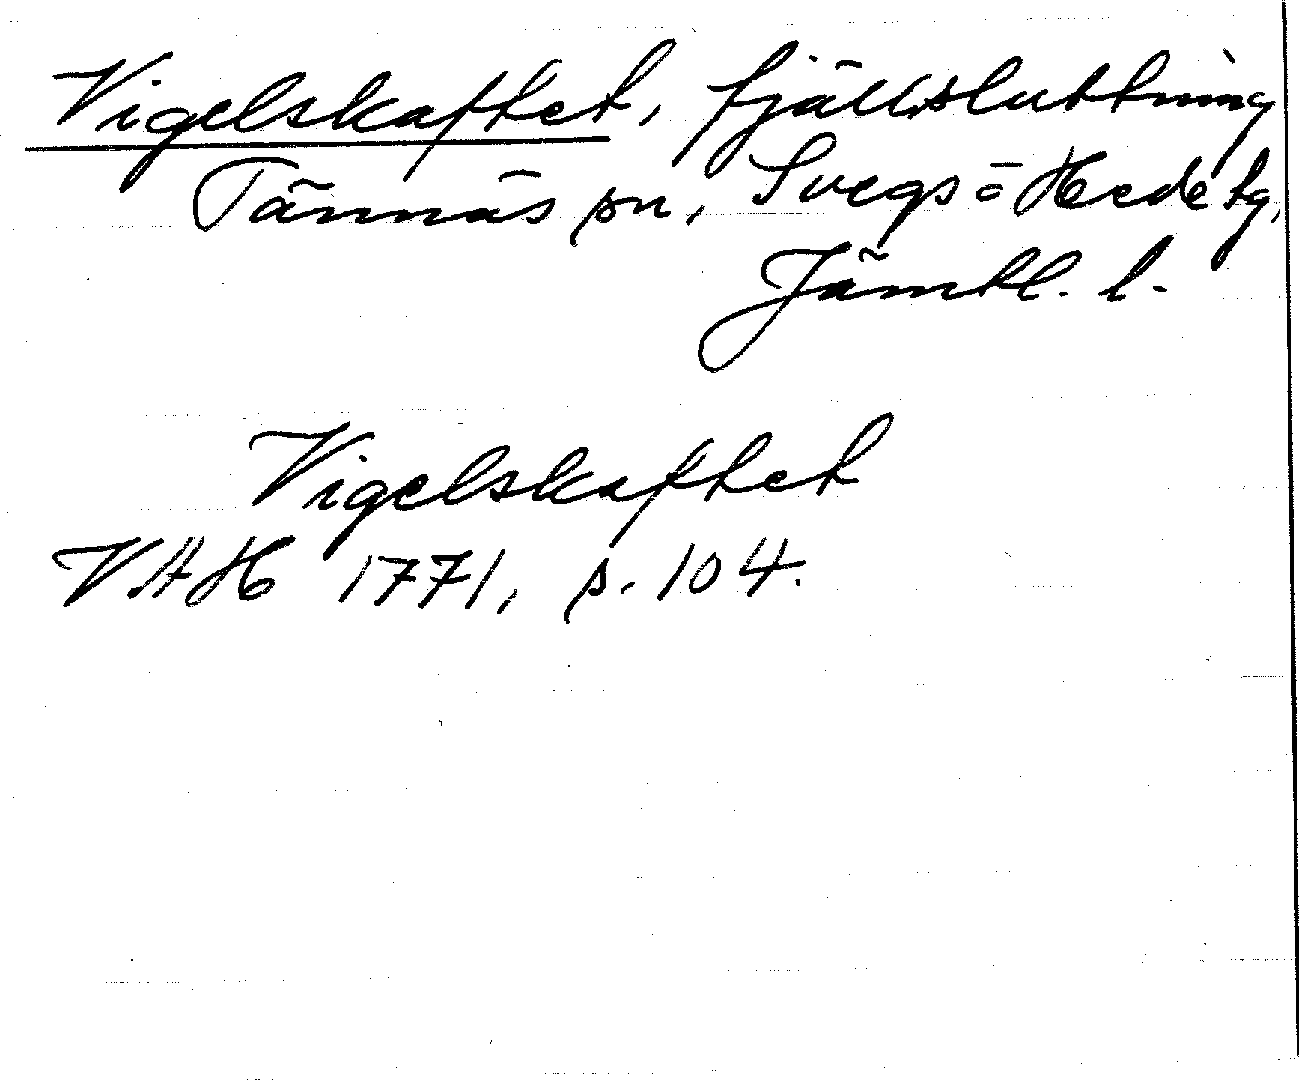 Vigelskaftet, fjällsluttning
Tännäs sn, Svegs o Hede tg,
Jämtl. l.
Vigelskaftet
VAH 1771, s. 104.